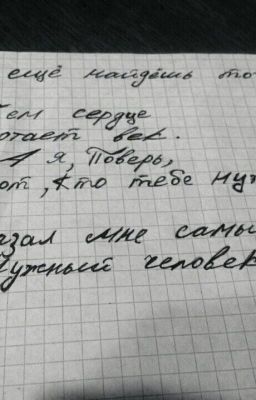 ещё найдёшь то
ем сердце
отает век.
А я, Поверь,
от, кто тебе ну
зал мне самы
нужный человек